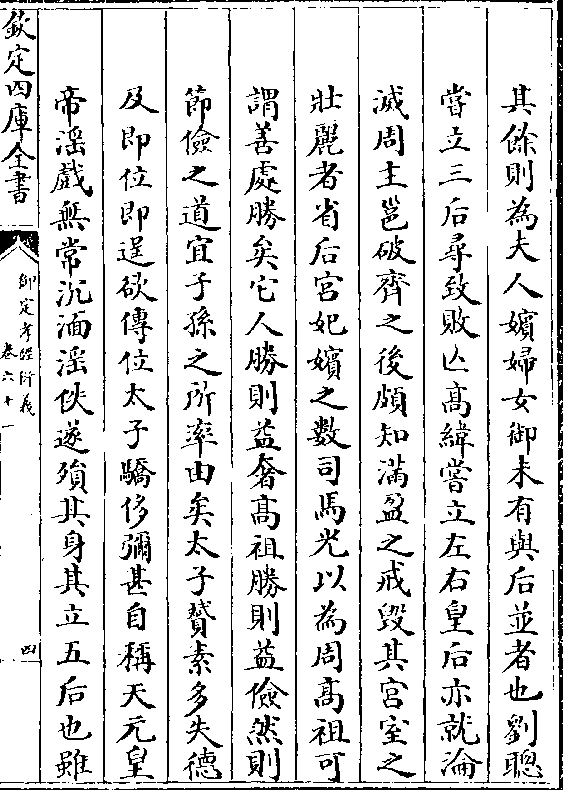 其餘則為夫人嬪婦女御未有與后並者也劉聰
嘗立三后尋致敗亾高緯嘗立左右皇后亦就淪
滅周主邕破齊之後頗知滿盈之戒毀其宮室之
壯麗者省后宮妃嬪之數司馬光以為周髙祖可
謂善處勝矣它人勝則益奢髙祖勝則益儉然則
節儉之道宜子孫之所率由矣太子贇素多失德
及即位即逞欲傳位太子驕侈彌甚自稱天元皇
帝滛戲無常沉湎滛佚遂殞其身其立五后也雖
欽定四庫全書
御定孝經衍義
卷六十一
四